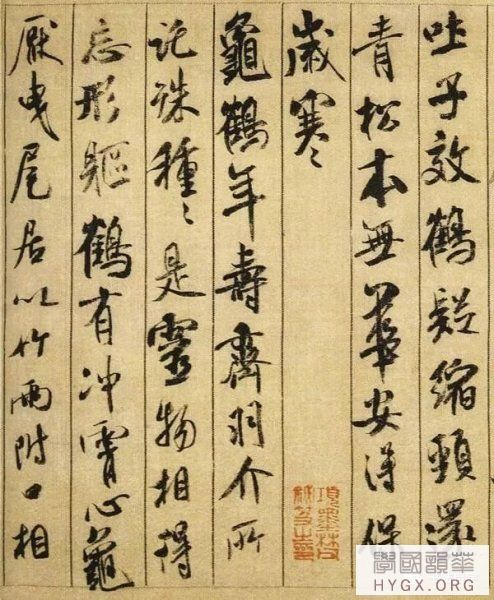 吐子效鶴疑縮頸還
青松本無華安得保
歲寒
龜鶴年壽齊羽介所
託殊種〻是靈物相得
忘形軀鶴有冲霄心龜
厭曳尾居以竹兩附口相
項墨林父
祕笈之印
華韻國學
HYGX.ORG